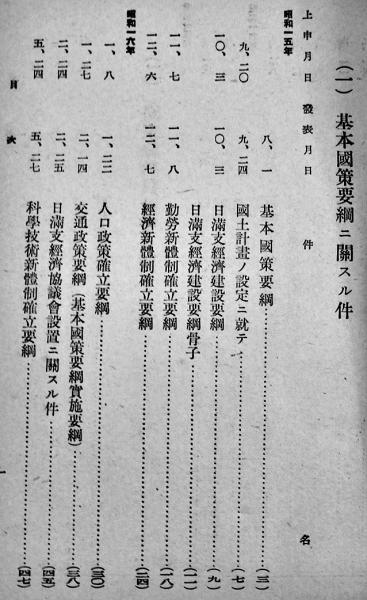 (一) 基本國策要綱ニ關スル件
上申月日 發表月日 件 名
昭和一五年
八、一 基本國策要綱……(三)
九、二〇 九、二四 國土計畫ノ設定ニ就テ……(七)
一〇、三 一〇、三 日滿支經濟建設要綱……(九)
日滿支經濟建設要綱骨子……(一一)
一一、七 一一、八 勤勞新體制確立要綱……(一八)
一二、六 一二、七 經濟新體制確立要綱……(二四)
昭和一六年
一、八 一、二二 人口政策確立要綱……(三〇)
一、二七 二、一四 交通政策要綱(基本國策要綱實施要綱)……(三八)
二、二四 二、二五 日滿支經濟協議會設置ニ關スル件……(四五)
五、二四 五、二七 科學技術新體制確立要綱……(四七)
目 次